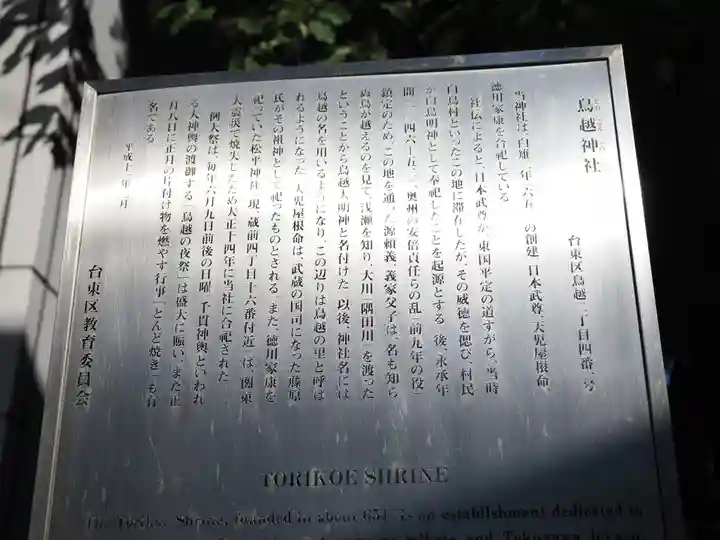 鳥越神社
台東区鳥越二丁目四番一号
当神社は、白雉二年(六五一)の創建、日本武尊、天児屋根命、
徳川家康を合祀している。
社伝によると、日本武尊が、東国平定の道すがら、当時
白鳥村といったこの地に滞在したが、その威徳を偲び、村民
が白鳥明神として奉祀したことを起源とする。後、永承年
間 奥州の安倍貞任らの乱(前九年の役)
鎮定のため、この地を通った源頼義、義家父子は、名も知ら
ぬ鳥が越えるのを見て、浅瀬を知り、大川(隅田川)を渡った
ということから鳥越大明神と名付けた。以後、神社名には
鳥越の名を用いるようになり、この辺りは鳥越の里と呼ば
れるようになった。天児屋根命は、武蔵の国司になった藤原
氏がその祖神として祀ったものとされる。また、徳川家康を
祀っていた松平神社(現、蔵前四丁目十六番付近)は、関東
大震災で焼失したため大正十四年に当社に合祀された。
例大祭は、毎年六月九日前後の日曜、千貫神輿といわれ
る大神輿の渡御する「鳥越の夜祭」は盛大に賑い、また正
月八日に正月の片付け物を燃やす行事「とんど焼き」も有
名である。
平成十一年三月
台東区教育委員会
TORIKOE SHRINE
The Torikoe Shrine, founded in about 651, is an establishment dedicated to
and Tokugawa Ieyasu